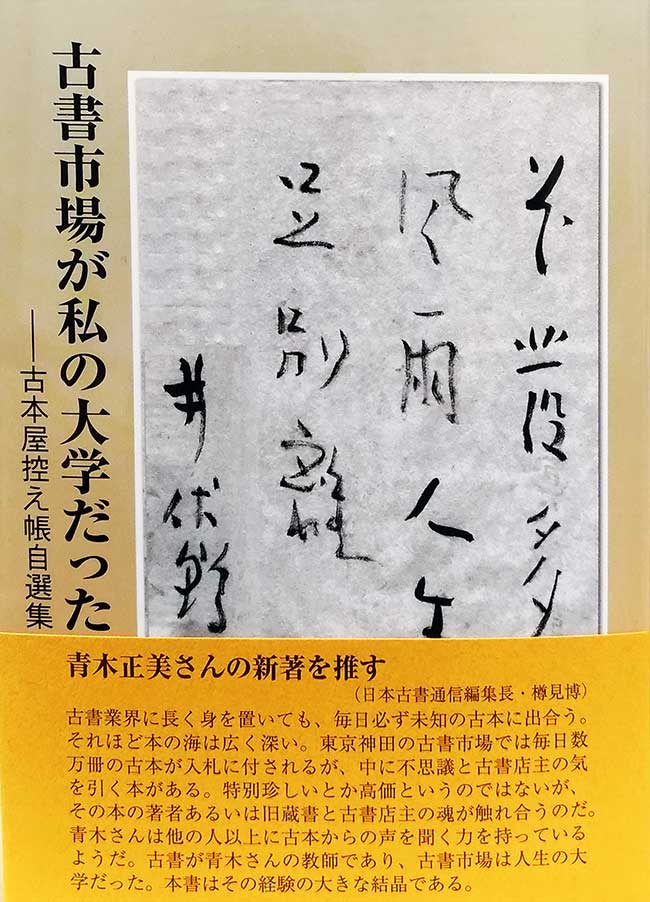 古書市場が私の大学だった
――古本屋控え帳自選集
花發多
風雨人生
足別離
井伏鱒
青木正美さんの新著を推す
（日本古書通信編集長・樽見博）
古書業界に長く身を置いても、毎日必ず未知の古本に出合う。
それほど本の海は広く深い。東京神田の古書市場では毎日数
万冊の古本が入札に付されるが、中に不思議と古書店主の気
を引く本がある。特別珍しいとか高価というのではないが、
その本の著者あるいは旧蔵書と古書店主の魂が触れ合うのだ。
青木さんは他の人以上に古本からの声を聞く力を持っている
ようだ。古書が青木さんの教師であり、古書市場は人生の大
学だった。本書はその経験の大きな結晶である。